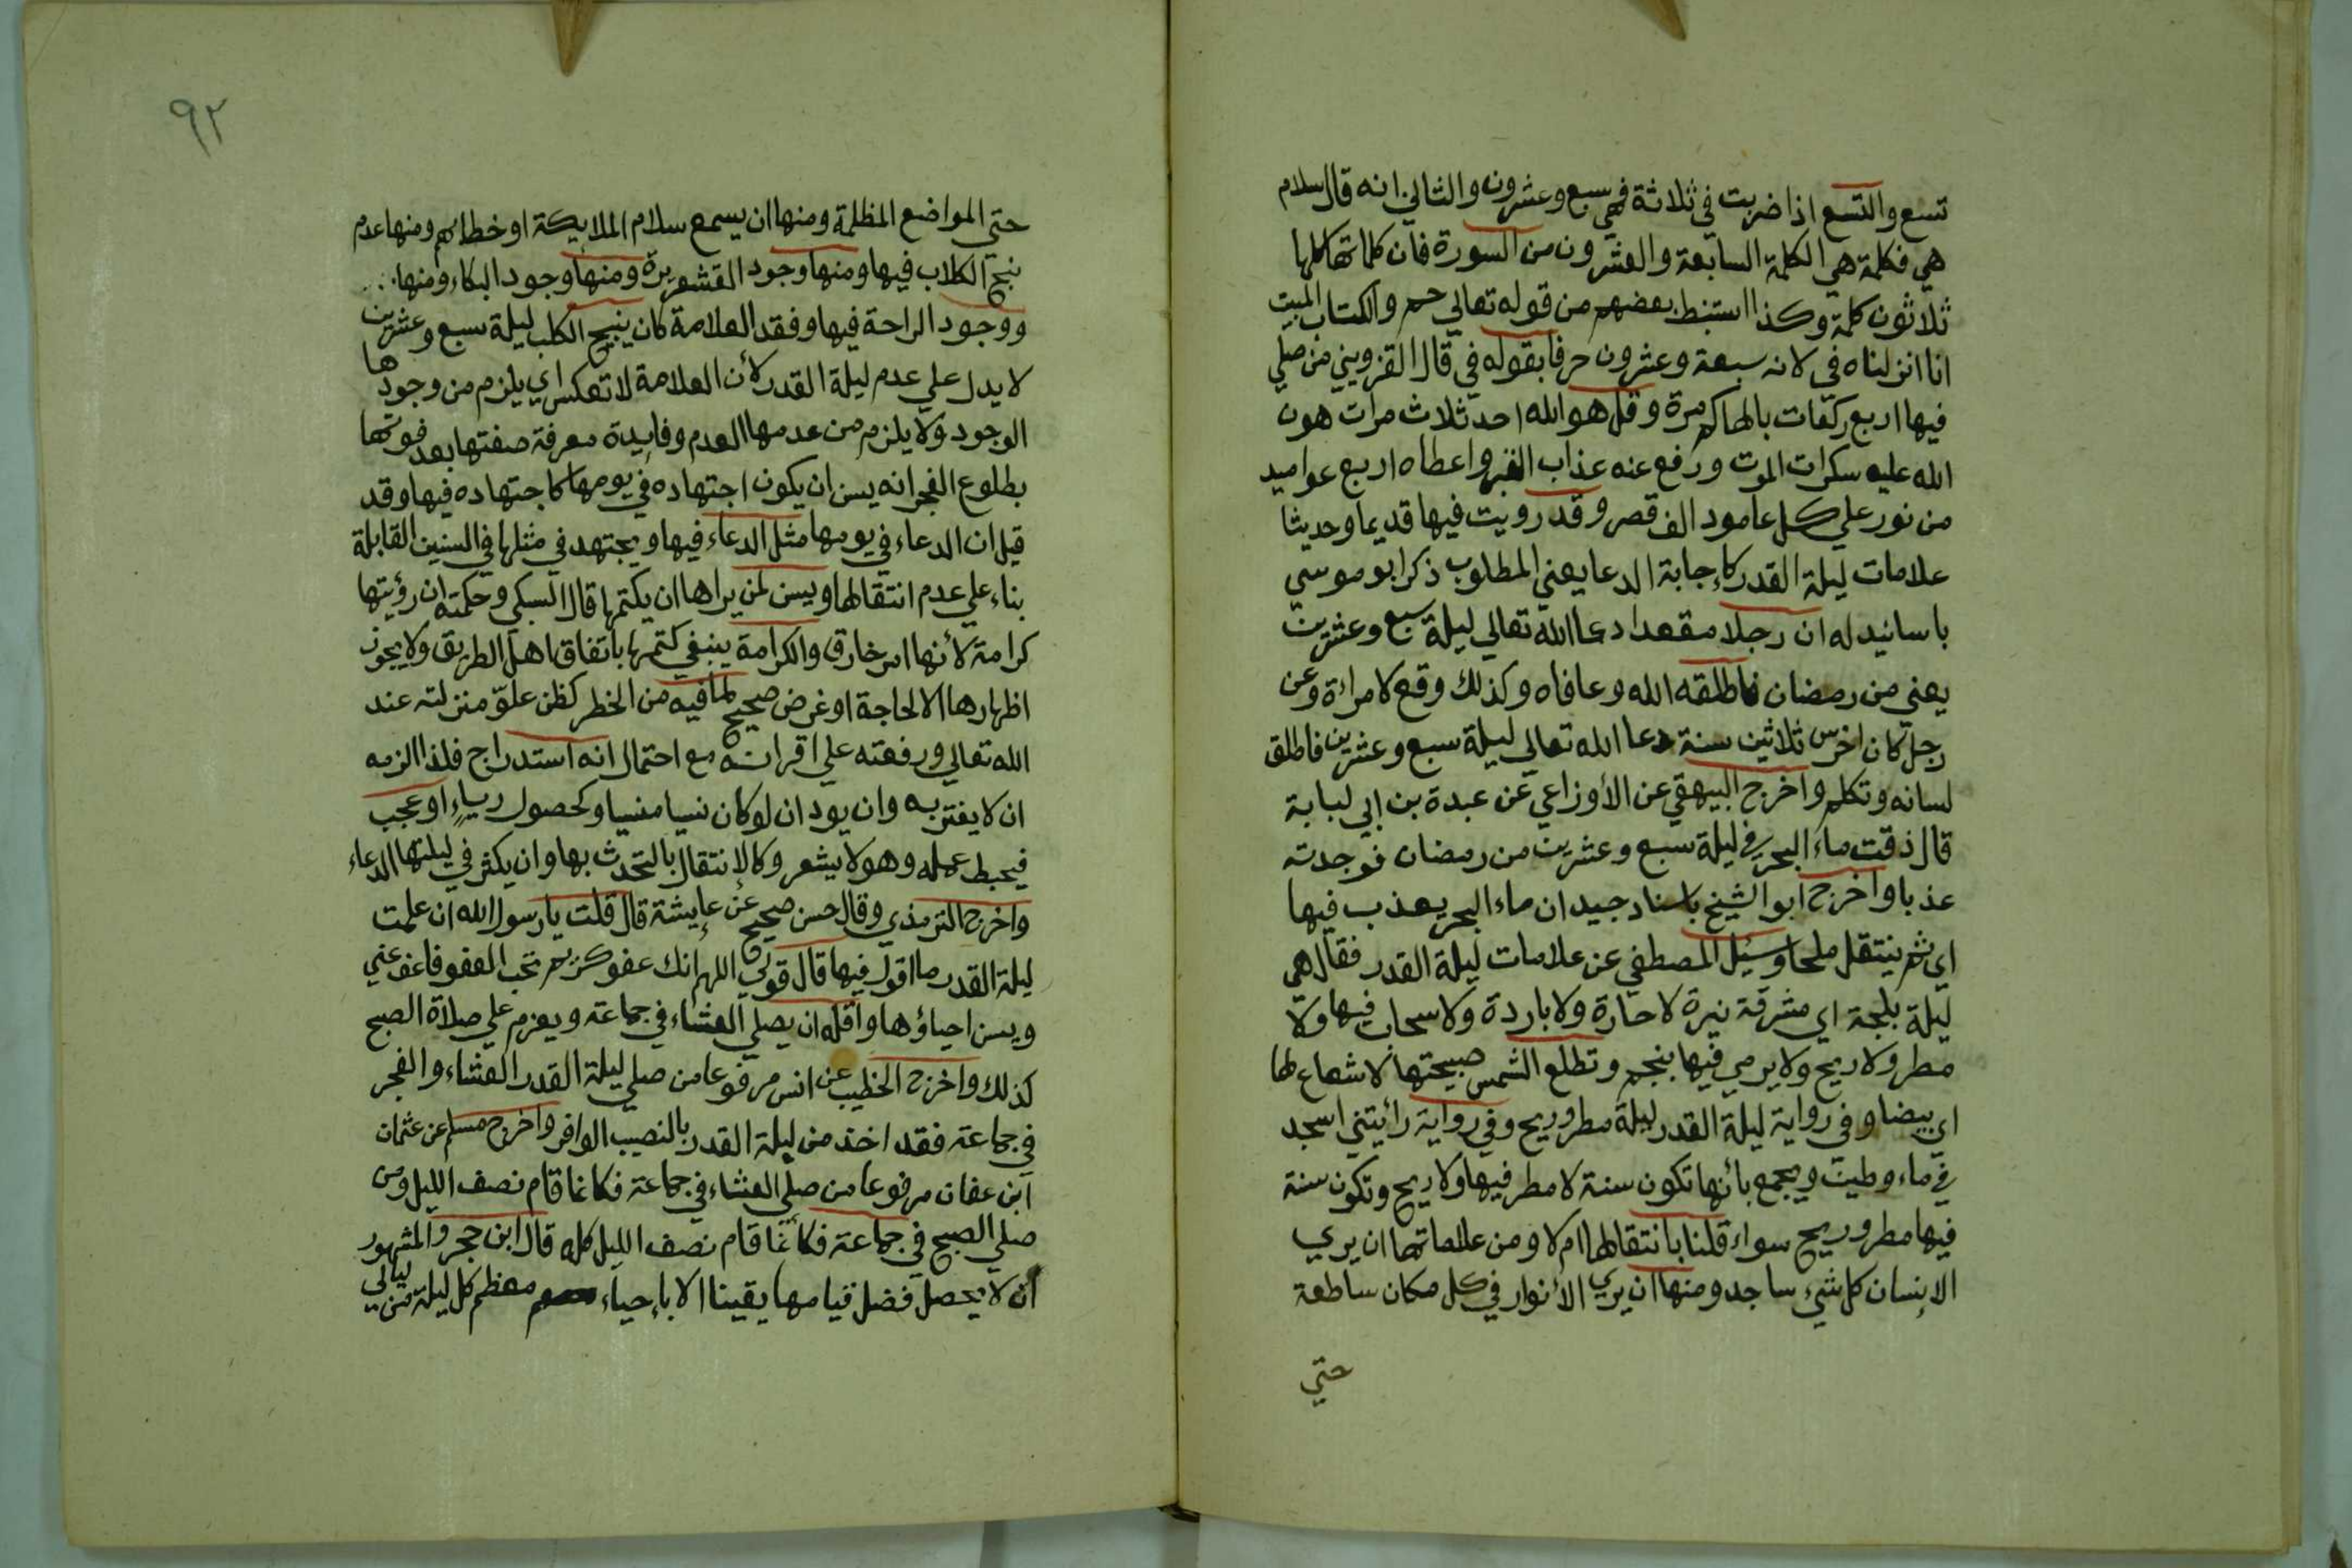 تسع والتسع اذا ضربت في ثلاثة فهي سبع وعشرون والثاني انه قال سلام
هي فكلمة هي الكلمة السابعة والعشرون من السورة فان كلماتها كلها
ثلاثون كلمة وكذا استنبط بعضهم من قوله تعالي حم والكتاب المبين
انا انزلناه في لانه سبعة وعشرون حرفا بقوله في قال القزويني من صلي
فيها اربع ركعات بالهاكم مرة وقل هو الله احد ثلاث مرات هون
الله عليه سكرات الموت ورفع عنه عذاب القبر واعطاه اربع عواميد
من نور علي كل عامود الف قصر وقد رويت فيها قديما وحديثا
علامات ليلة القدر كإجابة الدعا يعني المطلوب ذكر ابو موسي
باسانيد له ان رجلا مقعدا دعا الله تعالي ليلة سبع وعشرين
يعني من رمضان فاطلقه الله وعافاه وكذلك وقع لامراءة وعن
رجل كان اخرس ثلاثين سنة دعا الله تعالي ليلة سبع وعشرين فاطلق
لسانه وتكلم واخرج البيهقي عن الأوزاعي عن عبدة بن ابي لبابة
قال ذقت ماء البحر في ليلة سبع وعشرين من رمضان فوجدته
عذبا واخرج ابو الشيخ باسناد جيد ان ماء البحر يعذب فيها
اي ثم ينتقل ملحا وسئيل المصطفي عن علامات ليلة القدر فقال هي
ليلة بلجة اي مشرقة نيرة لا حارة ولا باردة ولا سحاب فيها ولا
مطر ولا ريح ولا يرمي فيها بنجم وتطلع الشمس صبيحتها لا شعاع لها
اي بيضا وفي رواية ليلة القدر ليلة مطر وريح وفي رواية رائيتني اسجد
في ماء وطين ويجمع بأنها تكون سنة لا مطر فيها ولا ريح وتكون سنة
فيها مطر وريح سواء قلنا بانتقالها ام لا ومن علاماتها ان يري
الإنسان كل شيء ساجد ومنها ان يري الأنوار في كل مكان ساطعة
حتي
٩٢
حتي المواضع المظلمة ومنها ان يسمع سلام الملايكة او خطابهم ومنها عدم
نبح الكلاب فيها ومنها وجود القشعريرة ومنها وجود البكاء ومنها
ووجود الراحة فيها وفقد العلامة كان ينبح الكلب ليلة سبع وعشرين
لا يدل علي عدم ليلة القدر لأن العلامة لا تعكس اي يلزم من وجودها
الوجود ولا يلزم من عدمها العدم وفايدة معرفة صفتها بعد فوتها
بطلوع الفجر انه يسن ان يكون اجتهاده في يومها كاجتهاده فيها وقد
قيل ان الدعاء في يومها مثل الدعاء فيها ويجتهد في مثلها في السنين القابلة
بناء علي عدم انتقالها ويسن لمن يراها ان يكتمها قال السبكي وحكمته ان رؤيتها
كرامة لأنها امر خارق والكرامة ينبغي كتمها باتفاق اهل الطريق ولا يجوز
اظهارها الا لحاجة او غرض صحيح لما فيه من الخطر كظن علوّ منزلته عند
الله تعالي ورفعته علي اقرانه مع احتمال انه استدراج فلذا الزمه
ان لا يغتر به وان يود ان لو كان نسيا منسيا وكحصول رياءٍ او عجب
فيحبط عمله وهو لا يشعر وكالإنتقال بالتحدث بها وان يكثر في ليلتها الدعاء
واخرج الترمذي وقال حسن صحيح عن عايشة قال قلت يا رسول الله ان علمت
ليلة القدر ما اقول فيها قال قولي اللهم انك عفو كريم تحب العفو فاعف عني
ويسن احياؤها واقله ان يصلي العشاء في جماعة ويعزم علي صلاة الصبح
كذلك واخرج الخطيب عن انس مرفوعا من صلي ليلة القدر العشاء والفجر
في جماعة فقد اخذ من ليلة القدر بالنصيب الوافر واخرج مسلم عن عثمان
ابن عفان مرفوعا من صلي العشاء في جماعة فكانما قام نصف الليل ومن
صلي الصبح في جماعة فكأنما قام نصف الليل كله قال ابن حجر والمشهور
ان لا يحصل فضل قيامها يقينا الا بإحياء معظم كل ليلة من ليالي